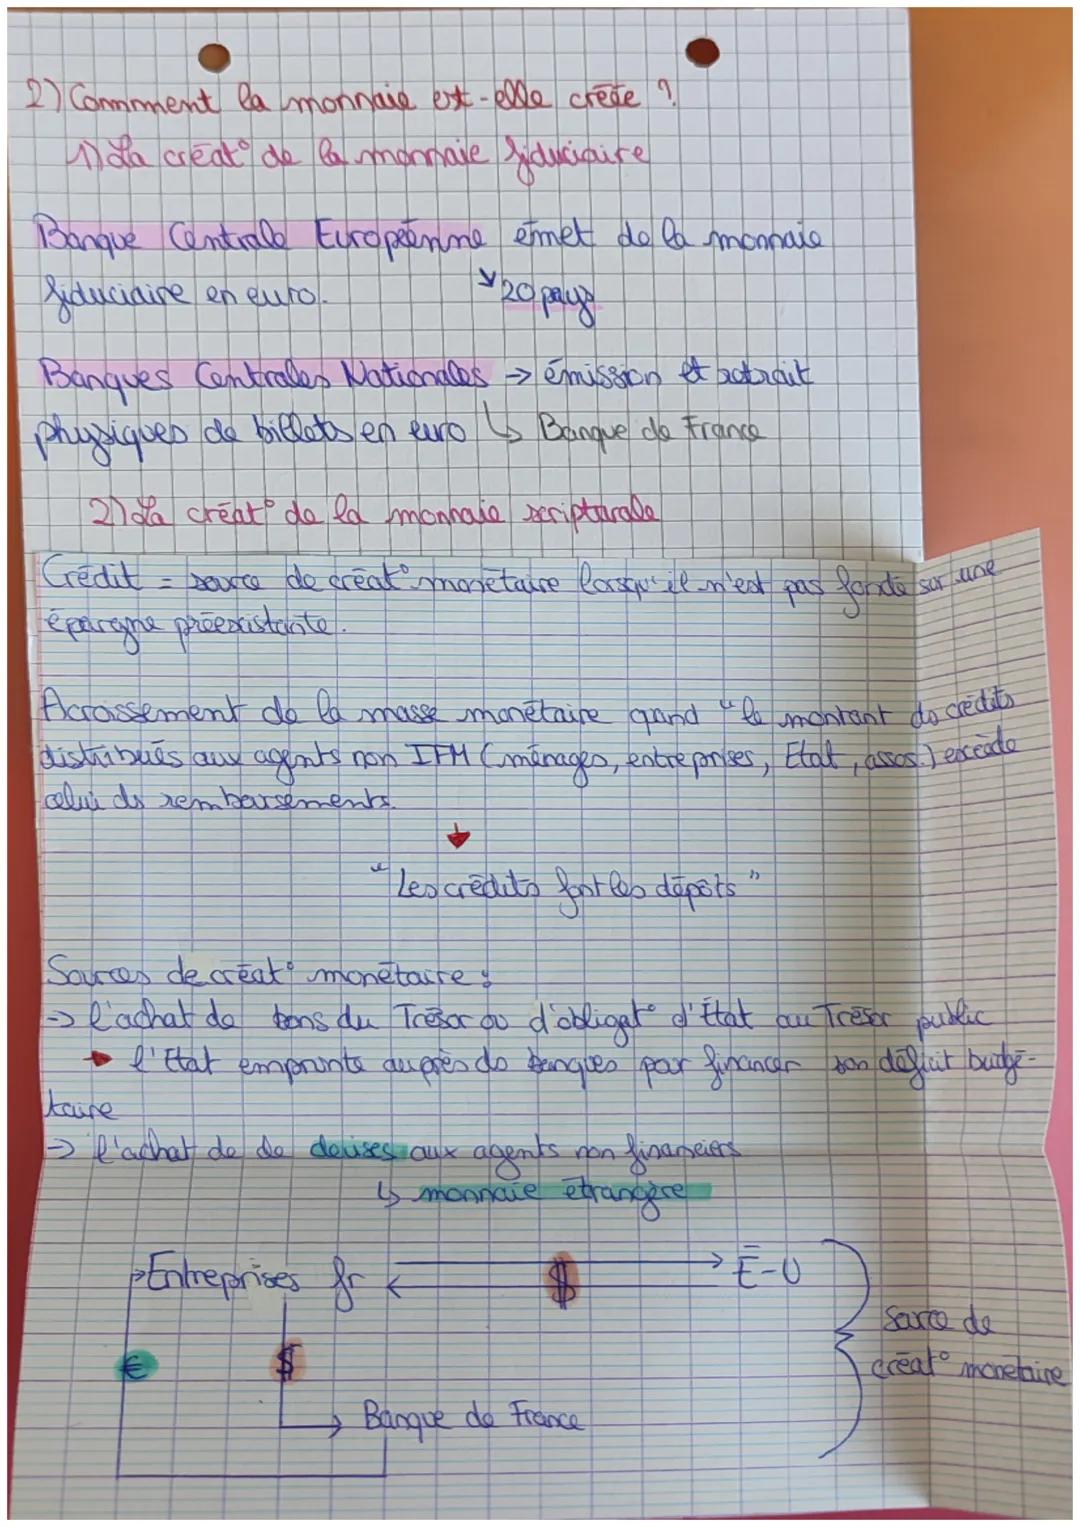 2) Comment la monnaie est-elle créée ?
1) La créat° de la monnaie fiduciaire
Banque Centrale Européenne émet de la monnaie
fiduciaire en euro.
20 pays
Banques Centrales Nationales → émission et retrait
physiques de billets en euro ↳ Banque de France
2) La créat° de la monnaie scripturale
Crédit = source de créat° monétaire lorsqu'il n'est pas fondé sur une
épargne préexistante.
Acroissement de la masse monétaire qand "le montant ds crédits
distribués aux agents non IFM (ménages, entreprises, Etat, assos.) excède
celui ds remboursements.
"Les crédits font les dépôts"
Sources de créat° monétaire :
→ l'achat de bons du Trésor ou d'obligat° d'État au Trésor public
l'Etat emprunte auprès ds banques pour financer son déficit budgé-
taire
→ l'achat de de devises aux agents non financiers
↳ monnaie étrangère
Entreprises fr $ É-U
Source de
€ $ créat° monétaire
Banque de France